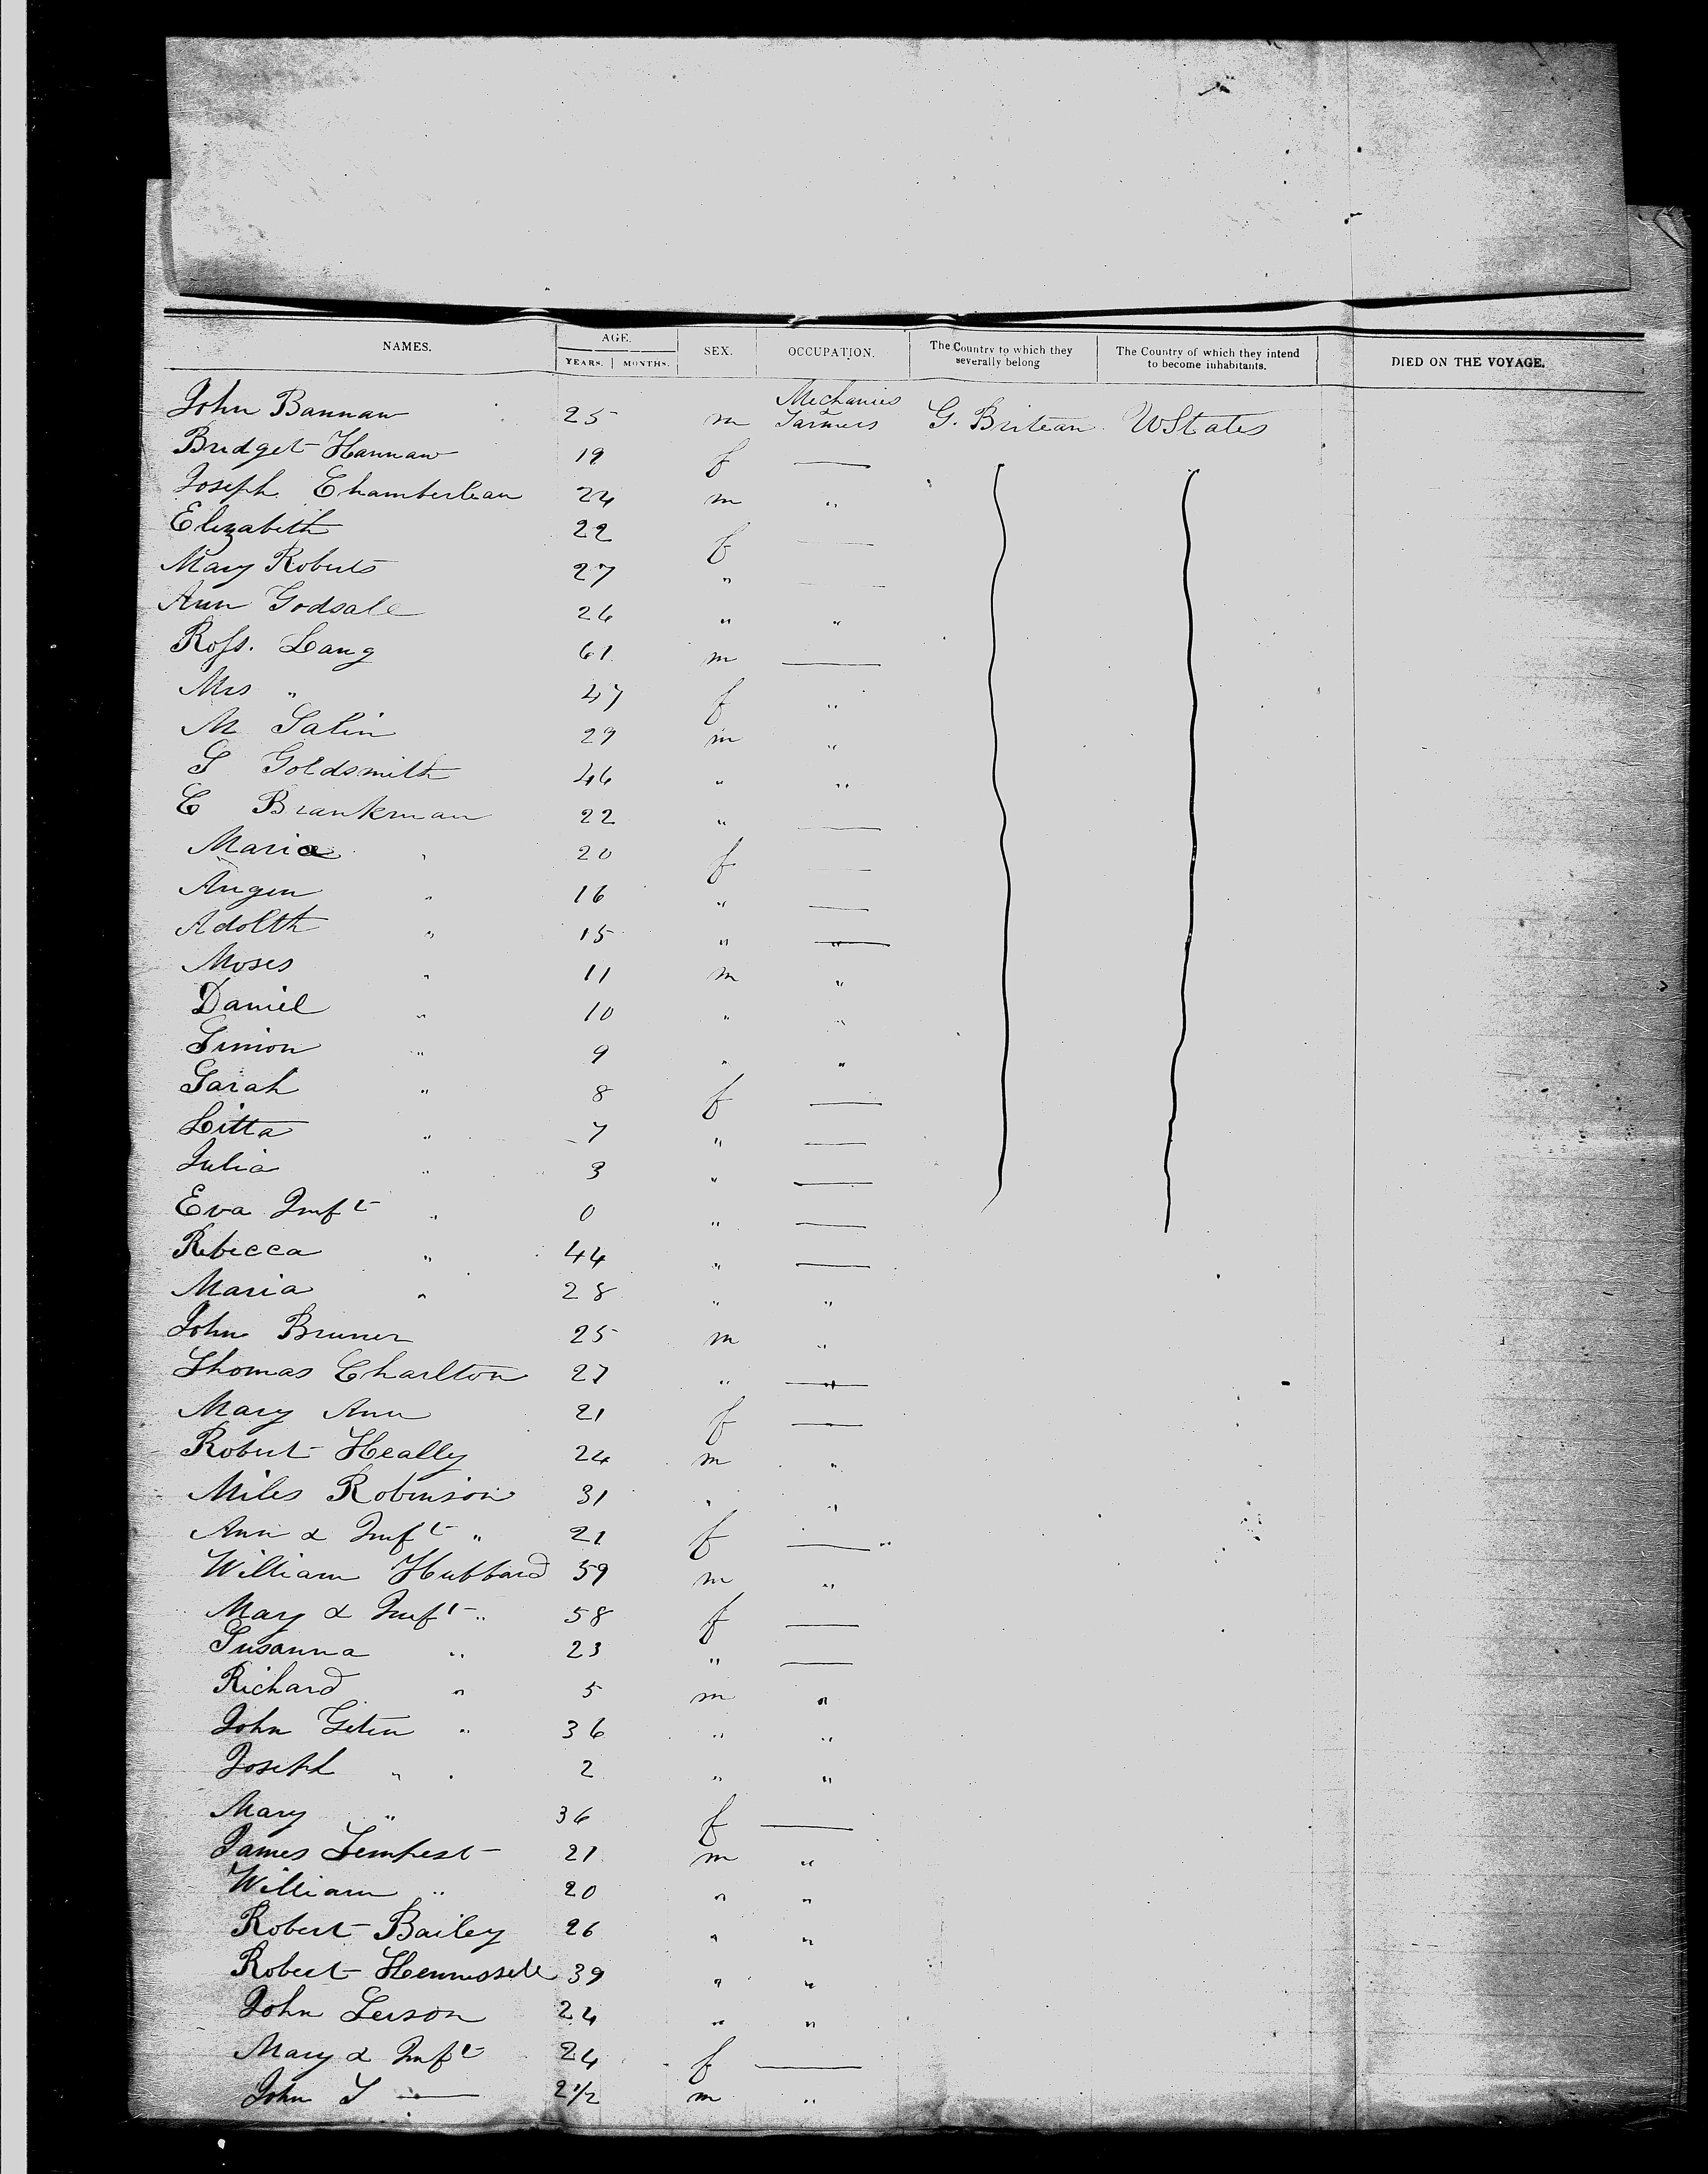 NAMES. AGE. SEX. OCCUPATION. The Country to which they severally belong The Country of which they intend to become inhabitants. DIED ON THE VOYAGE.
YEARS. MONTHS.
John Bannan 25 m Mechanics & Farmers G. Britean U States
Bridget Hannan 19 f —
Joseph Chamberlean 24 m "
Elizabeth 22 f —
Mary Roberts 27 " —
Ann Godsall 26 " "
Ross. Lang 61 m —
Mrs " 47 f "
M Salin 29 m "
S Goldsmith 46 " "
C Brankman 22 " —
Maria " 20 f —
Augen " 16 " —
Adolth " 15 " "
Moses " 11 m "
Daniel " 10 " "
Simon " 9 " "
Sarah " 8 f —
Litta " 7 " —
Julia " 3 " —
Eva Inft " 0 " —
Rebecca " 44 " —
Maria " 28 " "
John Bruner 25 m "
Thomas Charlton 27 " "
Mary Ann 21 f —
Robert Heally 24 m "
Miles Robinson 31 " "
Ann & Inft " 21 f —
William Hubbard 59 m "
Mary & Inft " 58 f —
Susanna " 23 " —
Richard " 5 m "
John Giten " 36 " "
Joseph " 2 " "
Mary " 36 f —
James Tempest 21 m "
William " 20 " "
Robert Bailey 26 " "
Robert 39 " "
John Lerson 24 " "
Mary & Inft 24 f —
John T — 2 1/2 m "